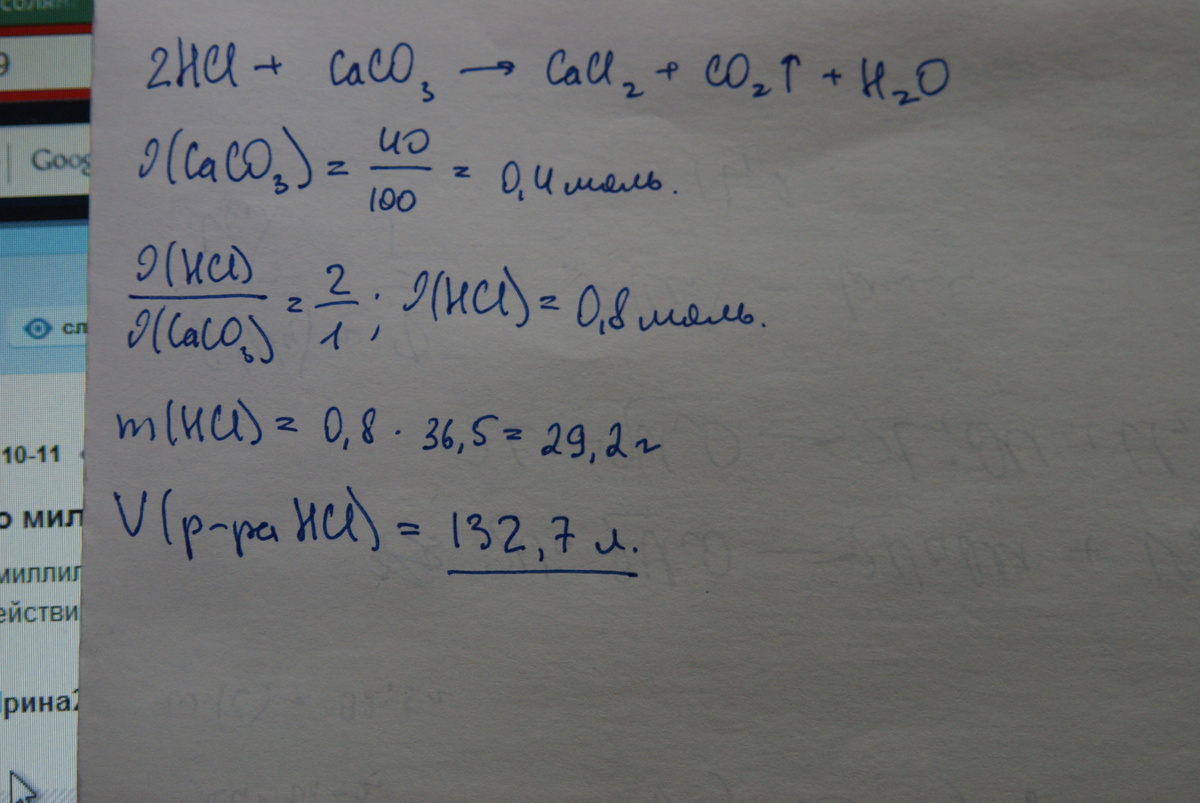 9
Goog
сл
10-11
о мил
миллил
ействи
рина2
2HCl + CaCO₃ → CaCl₂ + CO₂↑ + H₂O
ν(CaCO₃) = 40/100 = 0,4 моль.
ν(HCl)/ν(CaCO₃) = 2/1; ν(HCl) = 0,8 моль.
m(HCl) = 0,8 · 36,5 = 29,2 г
V(р-ра HCl) = 132,7 л.